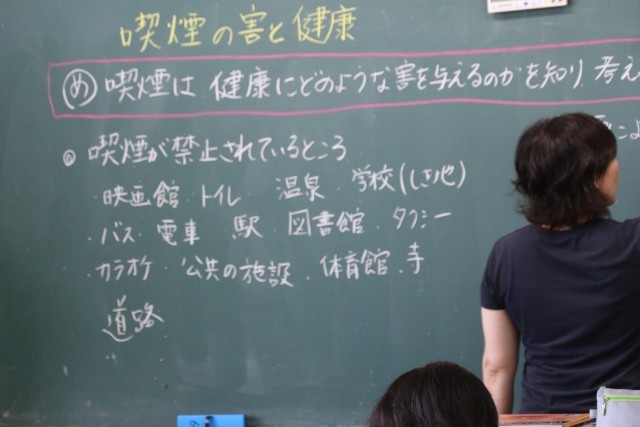 喫煙の害と健康
め 喫煙は、健康にどのような害を与えるのかを知り、考え
喫煙が禁止されているところ
・映画館・トイレ 温泉・学校(しき地)
・バス・電車 駅・図書館・タクシー
・カラオケ・公共の施設・体育館・寺
道路